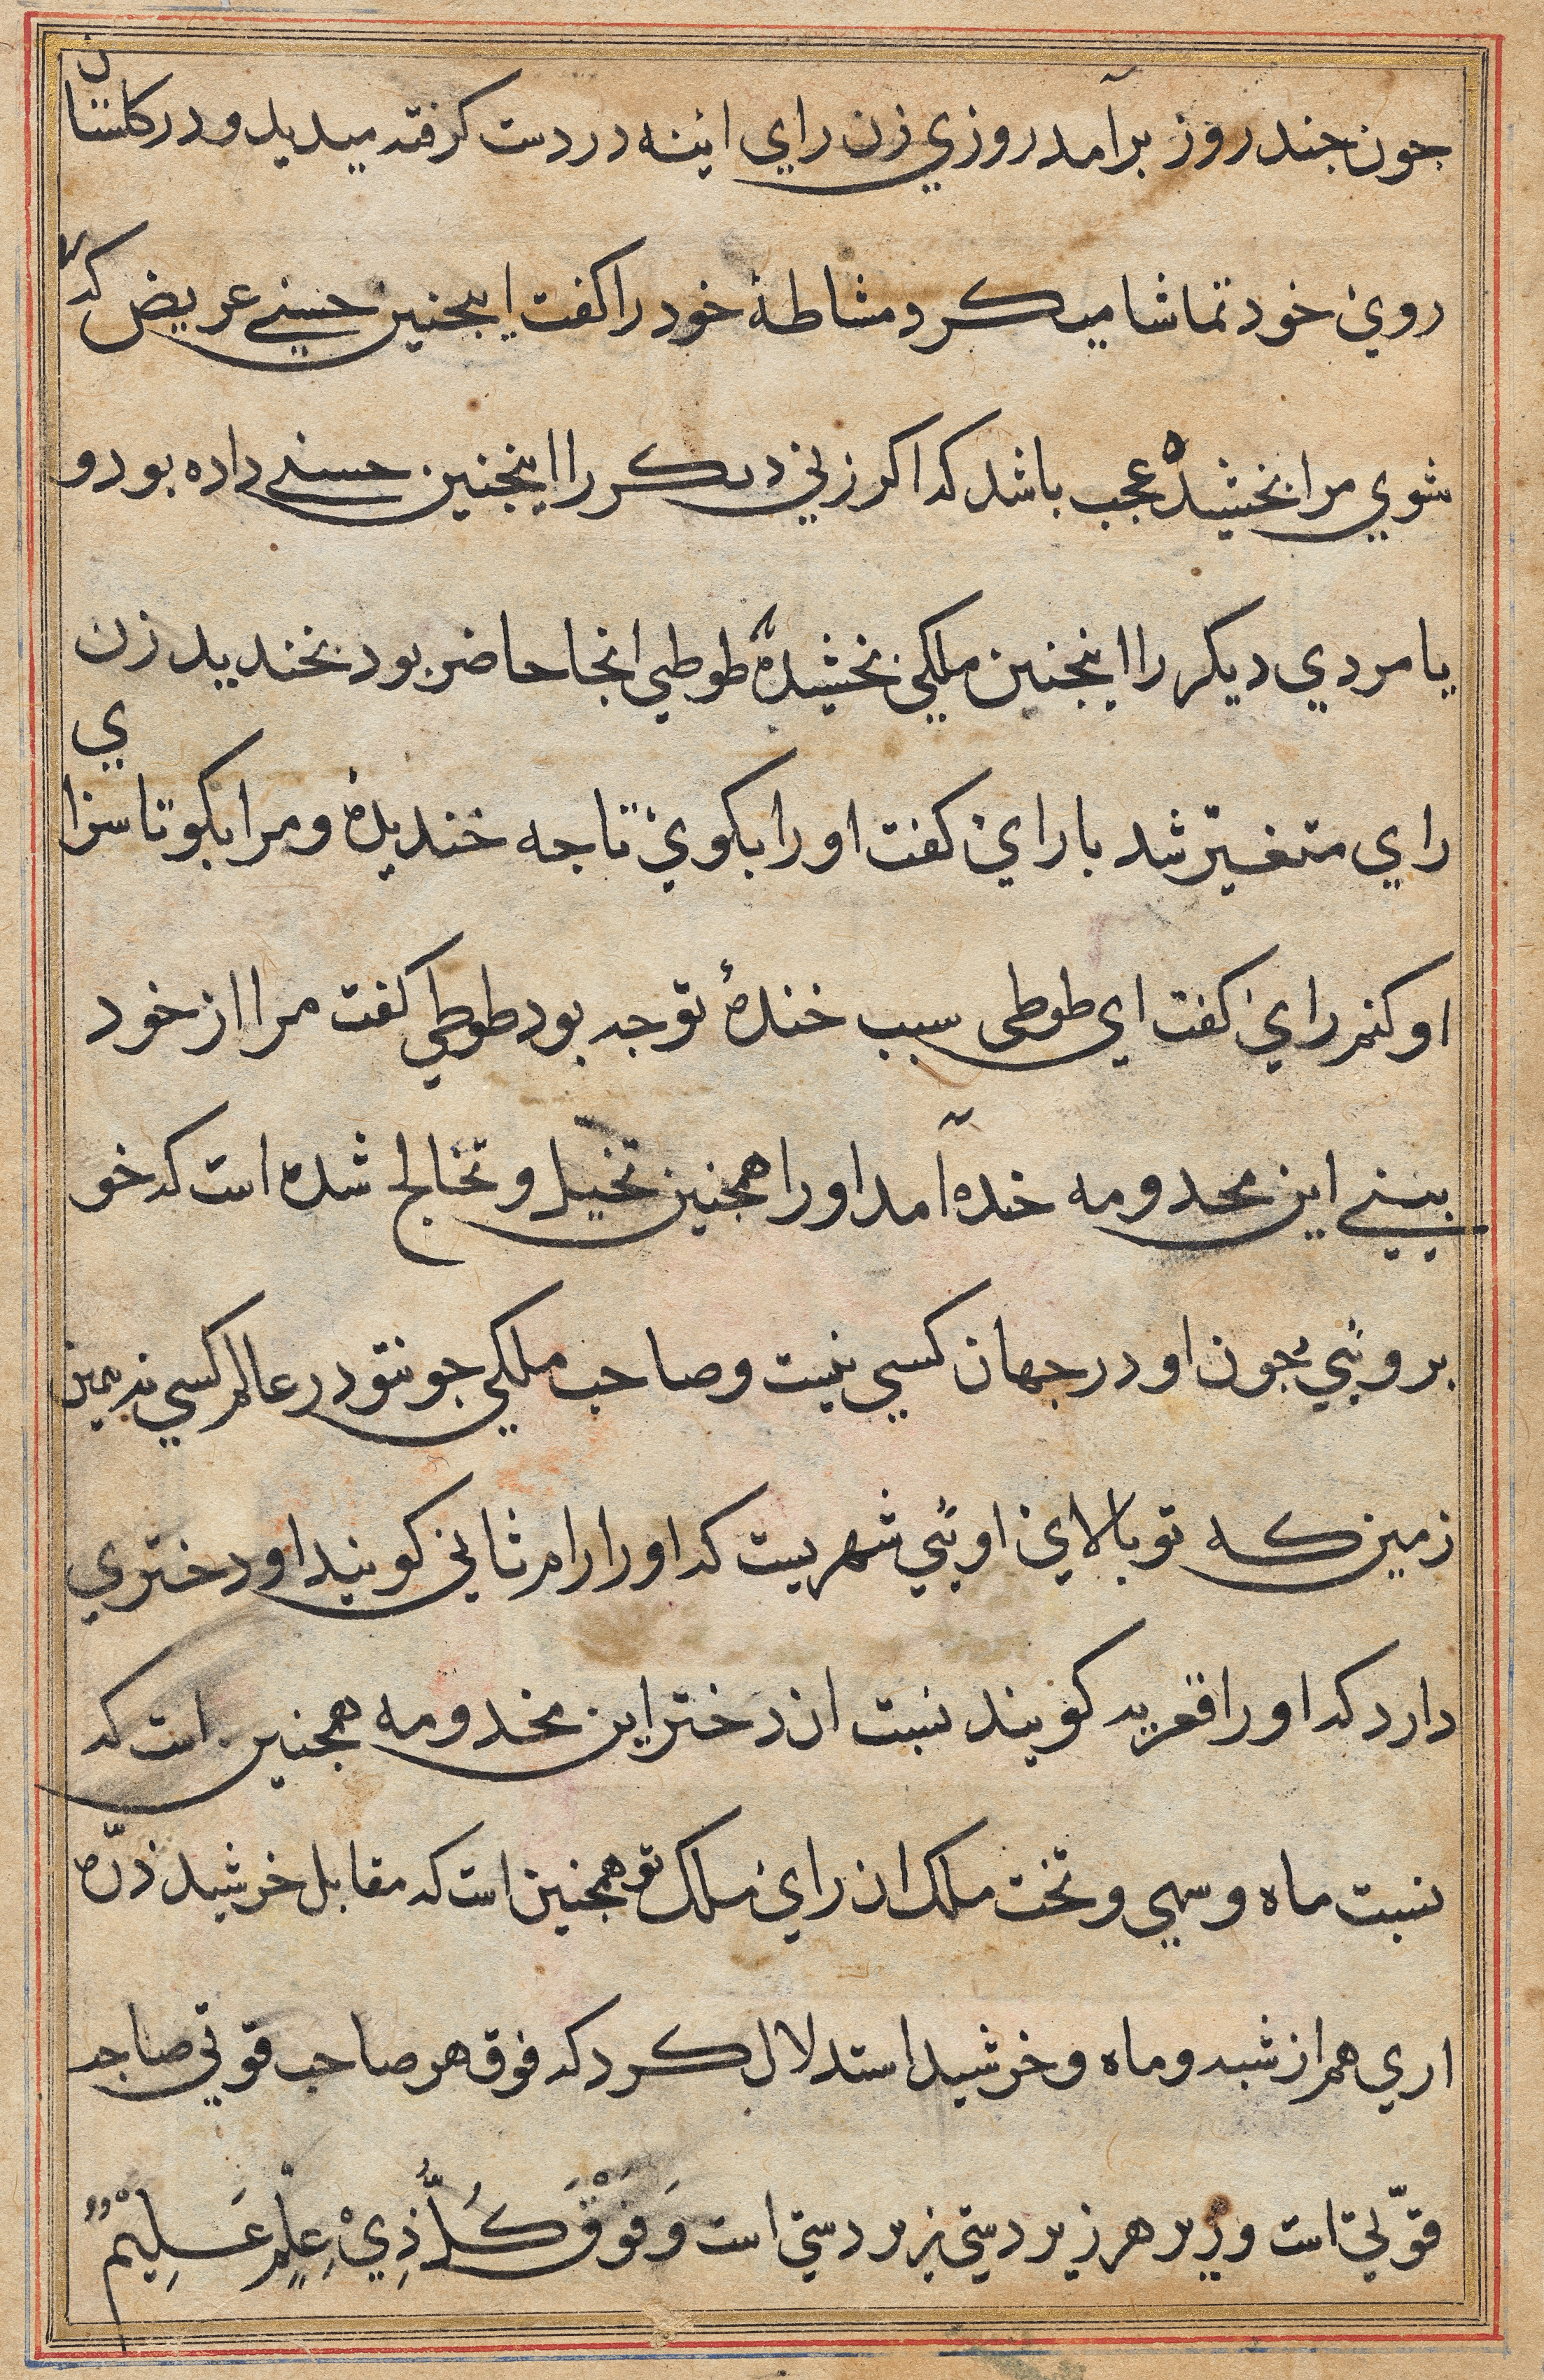 جون جند روز برآمد روزي زن راي اينه در دست كرفته ميديد و در كلستان
روي خود تماشا ميكرد مشاطهٔ خود را كفت اينجنين حسني عريض كه
شوي مرا بخشيده عجب باشد كه اكر زني ديكر را اينجنين حسني داده بود و
يا مردي ديكر را اينجنين ملكي بخشيده طوطي انجا حاضر بود بخنديد زن
راي متغيّر شد با راي كفت او را بكوي تا جه خنديدهٔ و مرا بكو تا سزاي
او كنم راي كفت اي طوطي سبب خندهٔ تو جه بود طوطي كفت مرا از خود
بيني اين محدومه خده آمد او را همجنين تخيل و تخالج شده است كه خو
بروئي جون او در جهان كسي نيست و صاحب ملكي جونتو در عالم كسي نه همين
زمين كه تو بالاي اوئي شهريست كه او را رام ثاني كويند او دختري
دارد كه او را قمريه كويند نسبت ان دختر اين مخدومه همجنين است كه
نسبت ماه و سهي و تخت ملك ان راي ملك تو همجنين است كه مقابل خرشيد ذرّه
اري هم از شبه و ماه و خرشيد استدلال كرد كه فوق هر صاحب قوتي صاحب
قوّتي است و زير هر زبردستي زبردستي است وَفَوْقَ كُلِّ ذِيْ عِلْمٍ عَلِيْمٌ